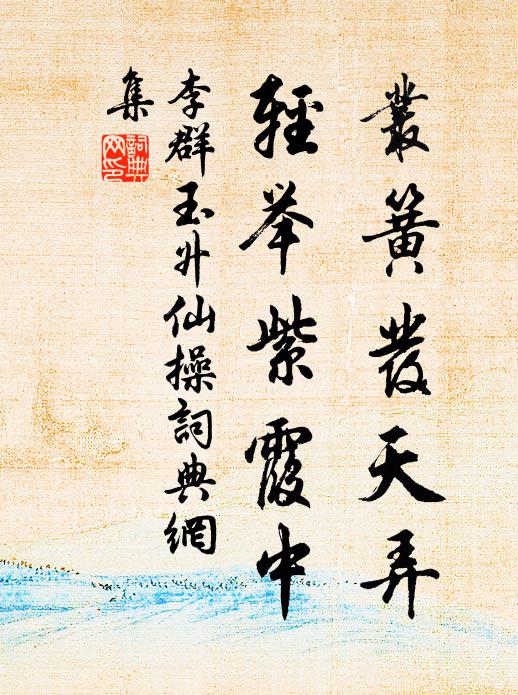 叢簧發天弄
輕举紫霞中
李群玉升仙操詞典網
集
詞典網印